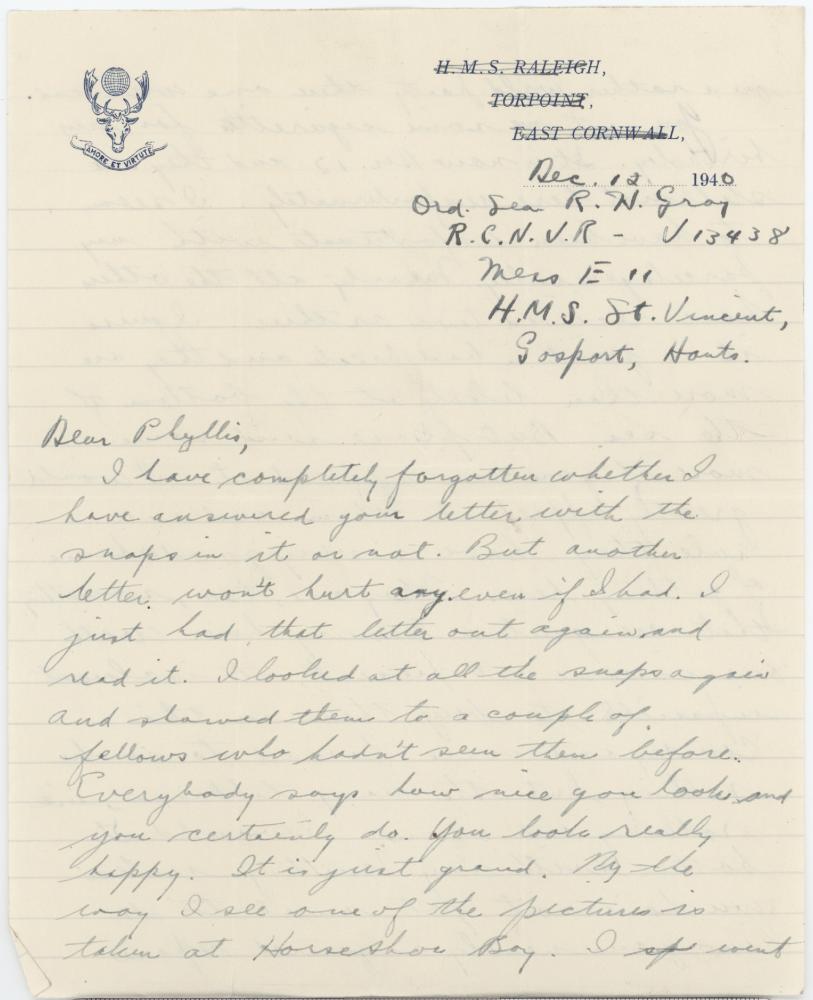 AMORE ET VIRTUTE
H. M. S. RALEIGH,
TORPOINT,
EAST CORNWALL,
Dec. 12 1940
Ord. Sea R. H. Gray
R.C.N.V.R - V 13438
Mess E 11
H.M.S. St. Vincent,
Gosport, Hants.
Dear Phyllis,
I have completely forgotten whether I
have answered your letter with the
snaps in it or not. But another
letter won't hurt any even if I had. I
just had that letter out again and
read it. I looked at all the snaps again
and showed them to a couple of
fellows who hadn't seen them before.
Everybody says how nice you look and
you certainly do. You look really
happy. It is just grand. By the
way I see one of the pictures is
taken at Horseshoe Bay. I went